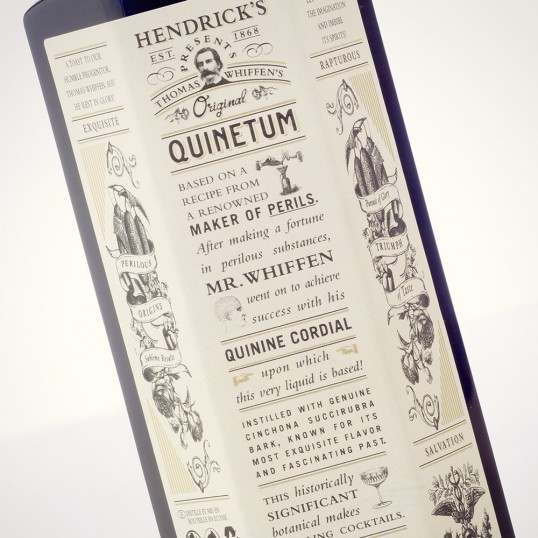 HENDRICK'S
EST. 1868
PRESENTS
THOMAS WHIFFEN'S
Original
QUINETUM
BASED ON A
RECIPE FROM
A RENOWNED
MAKER OF PERILS.
After making a fortune
in perilous substances,
MR. WHIFFEN
went on to achieve
success with his
QUININE CORDIAL
upon which
this very liquid is based!
INSTILLED WITH GENUINE
CINCHONA SUCCIRUBRA
BARK, KNOWN FOR ITS
MOST EXQUISITE FLAVOR
AND FASCINATING PAST.
THIS historically
SIGNIFICANT
botanical makes
COCKTAILS.
A TOAST TO OUR
HUMBLE PROGENITOR,
THOMAS WHIFFEN. MAY
HE REST IN GLORY.
EXQUISITE
PERILOUS
ORIGINS
Sublime Results
THE IMAGINATION
AND IMBIBE
ITS SPIRITS!
RAPTUROUS
Pursuit of Glory
TRIUMPH
of Taste
SALVATION